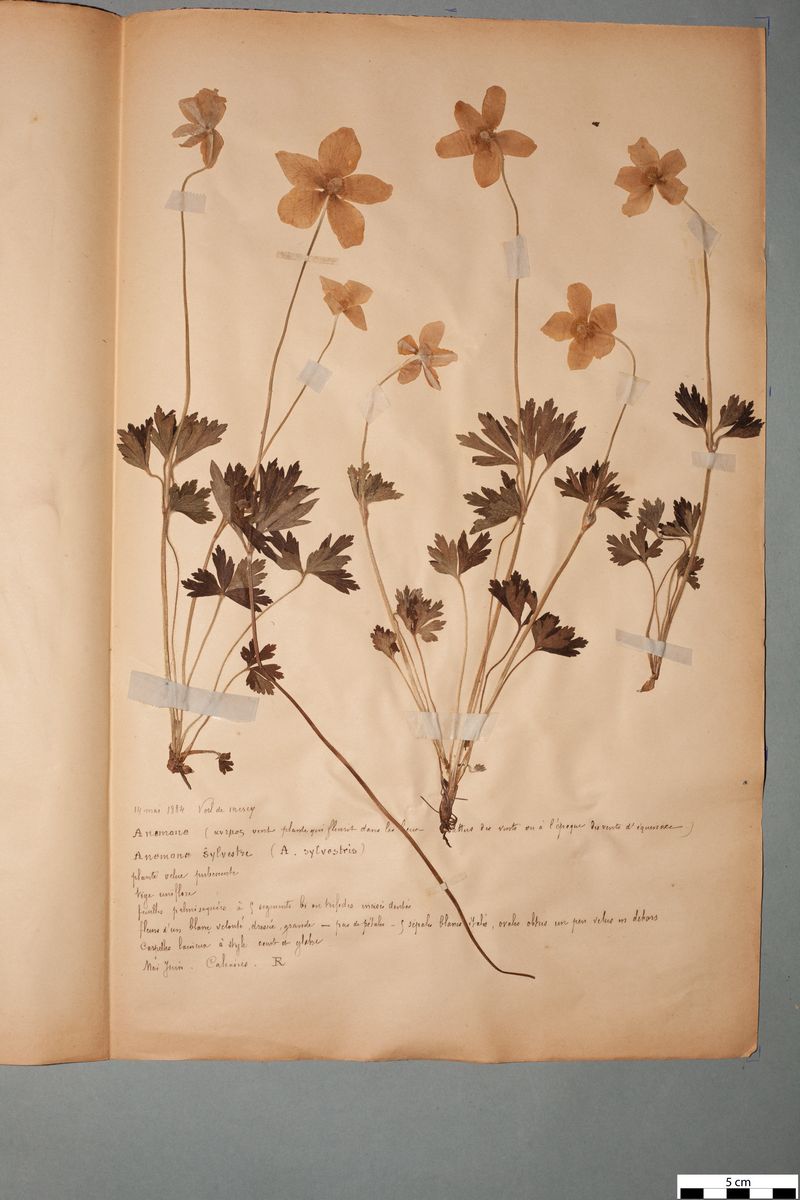 14 mai 1884 Nord de Mercy
Anemone ( plante qui fleurit dans les lieux battus des vents ou à l'époque des vents d'équinoxe )
Anemone Sylvestre ( A. sylvestris )
plante velue pubescente
tige uniflore
feuilles palmiséquées à 5 segments bi ou trifides incisés dentés
fleurs d'un blanc velouté, dressée, grande — pas de pétales - 5 sépales blancs étalés, ovales obtus un peu velus en dehors
Carpelles laineux à style court et glabre
Mai Juin. Calcaires. R
5 cm